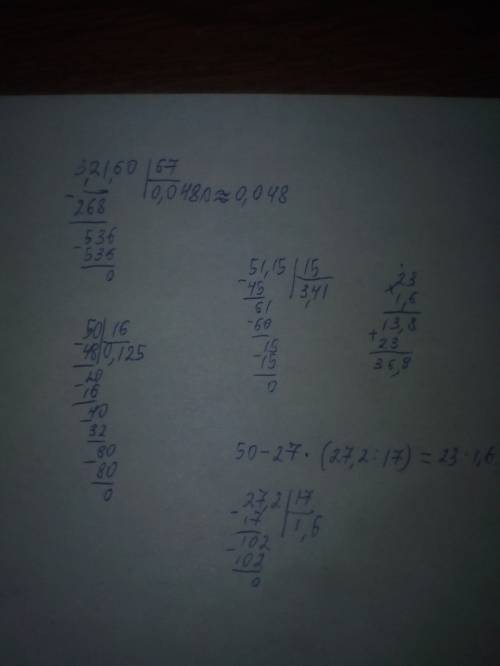 3,21,60 | 67
- 268 0,0480 ≈ 0,048
536
- 536
0
51,15 | 15
- 45 3,41
61
- 60
15
- 15
0
23
× 1,6
13,8
+ 23
36,8
- 50 | 16
48 0,125
- 20
16
- 40
32
- 80
80
0
50 - 27 · (27,2 : 17) = 23 · 1,6
- 27,2 | 17
17 1,6
- 102
102
0